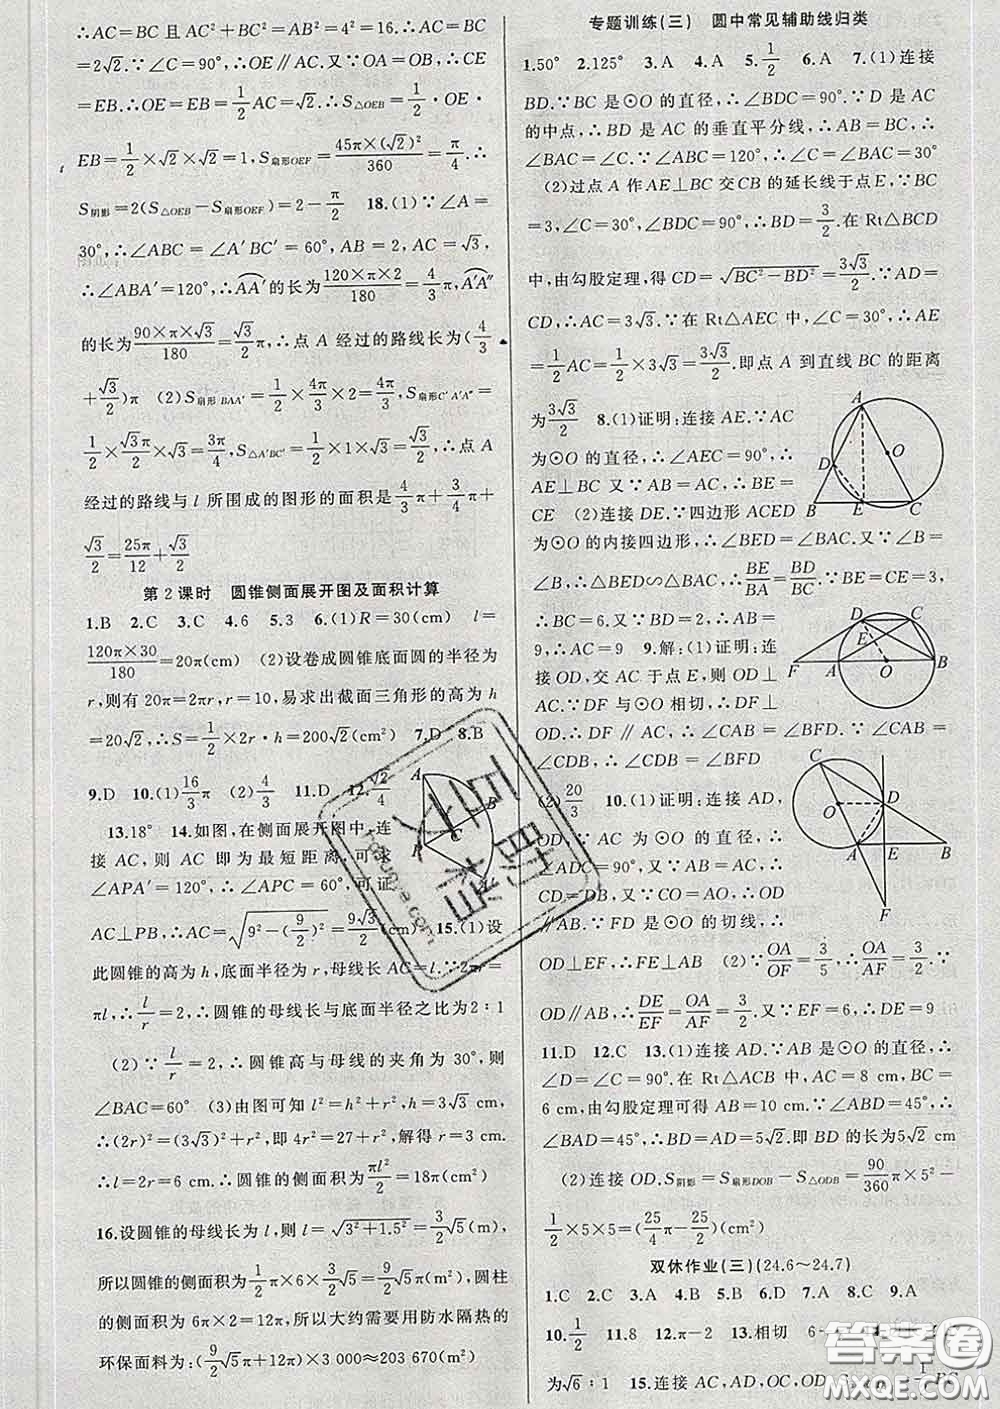 ∴AC=BC 且 AC²+BC²=AB²=4²=16.∴AC=BC=
2√2.∵∠C=90°,∴OE∥AC.又∵OA=OB,∴CE=
EB.∴OE=EB=1/2AC=√2.∴S△OEB=1/2·OE·
EB=1/2×√2×√2=1,S扇形OEF=45π×(√2)²/360=π/4.∴
S阴影=2(S△OEB−S扇形OEF)=2−π/2 18.(1)∵∠A=
30°,∴∠ABC=∠A′BC′=60°,AB=2,AC=√3,
∴∠ABA′=120°,∴AA′的长为120×π×2/180=4/3π,A′A″
的长为90×π×√3/180=√3/2π,∴点 A 经过的路线长为(4/3
+√3/2)π (2)S扇形BAA′=1/2×4π/3×2=4π/3,S扇形C′A′A″=
1/2×√3π/2×√3=3π/4,S△A′BC′=1/2×1×√3=√3/2,∴点 A
经过的路线与 l 所围成的图形的面积是4/3π+3/4π+
√3/2=25π/12+√3/2
第 2 课时 圆锥侧面展开图及面积计算
1.B 2.C 3.C 4.6 5.3 6.(1)R=30(cm) l=
120π×30/180=20π(cm) (2)设卷成圆锥底面圆的半径为
r,则有 20π=2πr,r=10,易求出截面三角形的高为 h
=20√2,∴S=1/2×2r·h=200√2(cm²) 7.D 8.B
9.D 10.(1)16/3π (2)4/3 11.D 12.√2/4
13.18° 14.如图,在侧面展开图中,连
接 AC,则 AC 即为最短距离,可求
∠APA′=120°,∴∠APC=60°,可证
AC⊥PB,∴AC=√(9²−(9/2)²)=9√3/2(cm) 15.(1)设
此圆锥的高为 h,底面半径为 r,母线长 AC=l.∵2πr=
πl,∴l/r=2,∴圆锥的母线长与底面半径之比为2∶1
(2)∵l/r=2,∴圆锥高与母线的夹角为 30°,则
∠BAC=60° (3)由图可知 l²=h²+r²,h=3√3 cm,
∴(2r)²=(3√3)²+r²,即 4r²=27+r²,解得 r=3 cm.
∴l=2r=6 cm,∴圆锥的侧面积为πl²/2=18π(cm²)
16.设圆锥的母线长为 l,则 l=√(3²+1.5²)=3/2√5(m),
所以圆锥的侧面积为1/2π×6×3/2√5=9/2√5π(m²),圆柱
的侧面积为 6π×2=12π(m²),所以大约需要用防水隔热的
环保面料为:(9/2√5π+12π)×3 000≈203 670(m²)
专题训练(三) 圆中常见辅助线归类
1.50° 2.125° 3.A 4.A 5.1/2 6.A 7.(1)连接
BD.∵BC 是⊙O 的直径,∴∠BDC=90°.∵D 是 AC
的中点,∴BD 是 AC 的垂直平分线,∴AB=BC,∴
∠BAC=∠C.∵∠ABC=120°,∴∠C=∠BAC=30°
(2)过点 A 作AE⊥BC 交CB 的延长线于点 E,∵BC
=3,∠C=30°,∠BDC=90°,∴BD=3/2.在 Rt△BCD
中,由勾股定理,得 CD=√(BC²−BD²)=3√3/2.∵AD=
CD,∴AC=3√3.∵在 Rt△AEC 中,∠C=30°,∴AE
=1/2AC=1/2×3√3=3√3/2.即点 A 到直线 BC 的距离
为3√3/2 8.(1)证明:连接 AE.∵AC
为⊙O 的直径,∴∠AEC=90°,∴
AE⊥BC 又∵AB=AC,∴BE=
CE (2)连接 DE.∵四边形 ACED
为⊙O 的内接四边形,∴∠BED=∠BAC.又∵∠B=
∠B,∴△BED∽△BAC,∴BE/BA=BD/BC.∵BE=CE=3,
∴BC=6.又∵BD=2,∴AB=
9,∴AC=9 9.解:(1)证明:连
接 OD,交 AC 于点 E,则 OD⊥
AC.∵DF 与⊙O 相切,∴DF⊥
OD.∴DF∥AC,∴∠CAB=∠BFD.∵∠CAB=
∠CDB,∴∠CDB=∠BFD
(2)20/3 10.(1)证明:连接 AD,
OD.∵AC 为⊙O 的直径,∴
∠ADC=90°.又∵AB=AC,∴
CD=DB,又 CO=AO,∴OD
∥AB.∵FD 是⊙O 的切线,∴
OD⊥EF,∴FE⊥AB (2)∵OA/OF=3/5,∴OA/AF=3/2.∵
OD∥AB,∴DE/EF=OA/AF=3/2.又∵EF=6,∴DE=9
11.D 12.C 13.(1)连接 AD.∵AB 是⊙O 的直径,∴
∠D=∠C=90°.在 Rt△ACB 中,AC=8 cm,BC=
6 cm,由勾股定理可得 AB=10 cm,又∵∠ABD=45°,∴
∠BAD=45°,∴BD=AD=5√2.即 BD 的长为5√2 cm
(2)连接 OD.S阴影=S扇形DOB−S△ODB=90/360π×5²−
1/2×5×5=(25/4π−25/2)(cm²)
双休作业(三)(24.6~24.7)
1.C 2.C 3.A 4.B 5.B 6.D 7.A 8.C 9.A
10.1/2 11.8 12.π−2 13.相切
为√6∶1 15.连接 AC,AD,OC,OD
答案圈